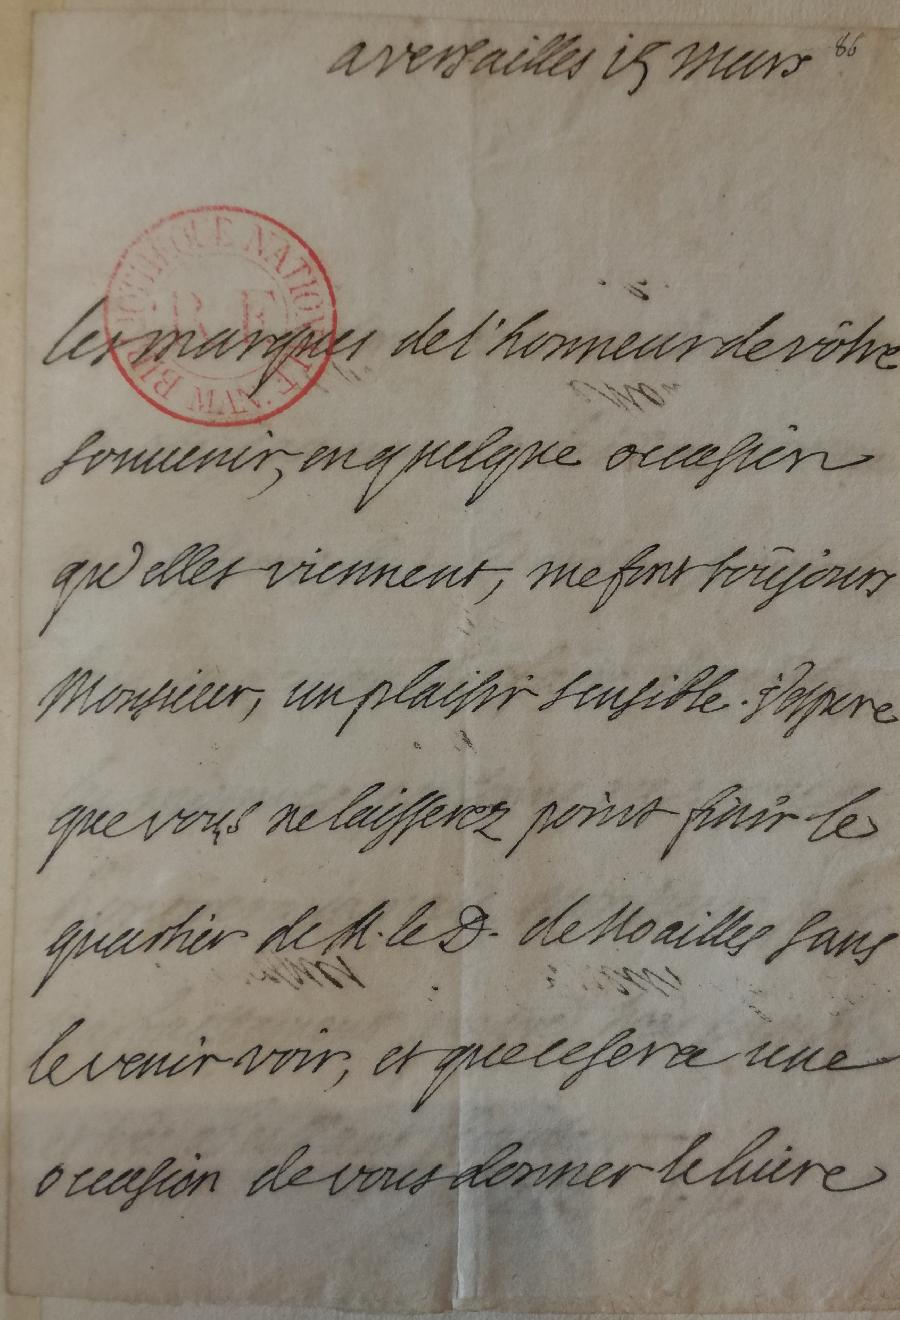 a versailles 15 mars
86
BIBLIOTHEQUE NATIONALE MAN
R F
les marques de l'honneur de vôtre
souuenir, en quelque occasion
qu'elles viennent, me font toûjours
Monsieur, un plaisir sensible. j'espere
que vous ne laisserez point finir le
quartier de M. le D. de Noailles sans
le venir voir, et que ce sera une
occasion de vous donner